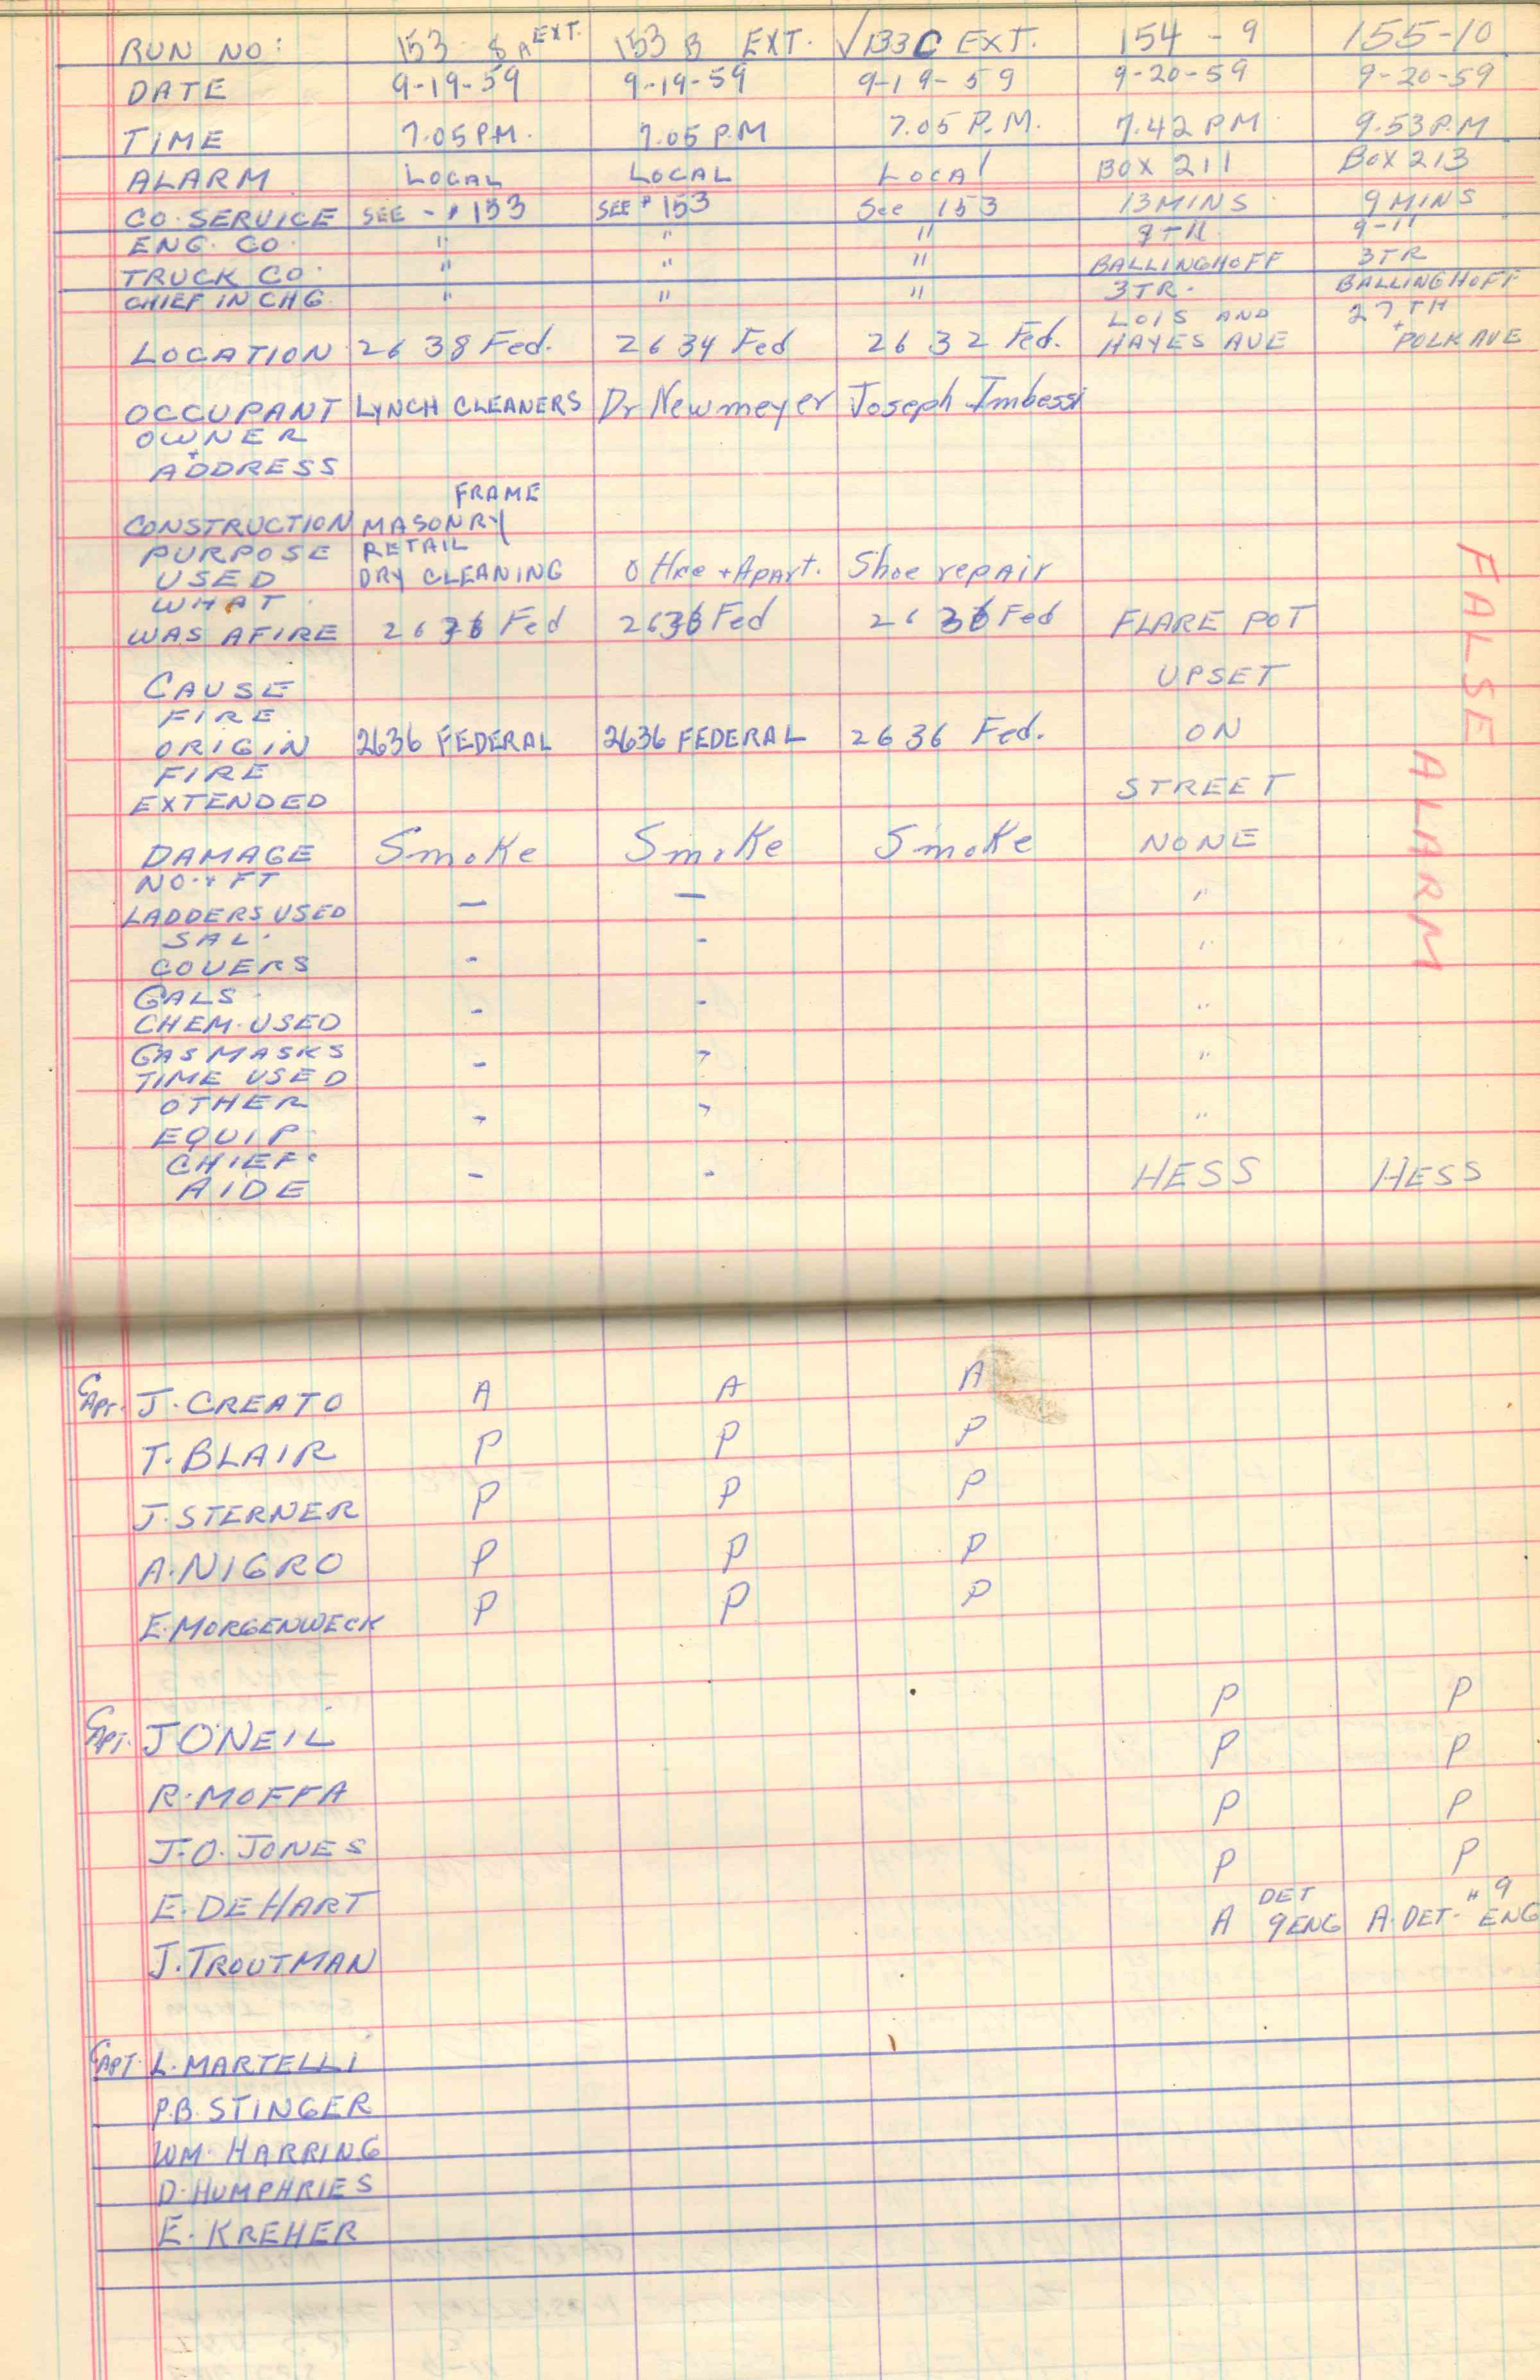 RUN NO: 153 - 8 A EXT. 153 B EXT. √133C EXT. 154 - 9 155-10
DATE 9-19-59 9-19-59 9-19-59 9-20-59 9-20-59
TIME 7.05 P.M. 7.05 P.M 7.05 P.M. 7.42 PM 9.53 P.M
ALARM LOCAL LOCAL LOCAl BOX 211 BOX 213
CO. SERVICE SEE - # 153 SEE # 153 See 153 13 MINS 9 MINS
ENG. CO. " " " 9-11 9-11
TRUCK CO. " " " BALLINGHOFF 3TR
CHIEF IN CHG " " " 3TR. BALLINGHOFF
LOIS AND 27 TH
LOCATION 2638 Fed. 2634 Fed 2632 Fed. HAYES AVE + POLK AVE
OCCUPANT LYNCH CLEANERS Dr Newmeyer Joseph Imbessi
OWNER
+
ADDRESS
FRAME
CONSTRUCTION MASONRY
PURPOSE RETAIL
USED DRY CLEANING Office + Apart. Shoe repair
WHAT
WAS AFIRE 2636 Fed 2636 Fed 2636 Fed FLARE POT
CAUSE UPSET
FIRE
ORIGIN 2636 FEDERAL 2636 FEDERAL 2636 Fed. ON
FIRE
EXTENDED STREET
DAMAGE Smoke Smoke Smoke NONE
NO. + FT
LADDERS USED — — "
SAL.
COVERS - - "
GALS.
CHEM. USED - - "
GAS MASKS
TIME USED - - "
OTHER
EQUIP. - - "
CHIEF.
AIDE - - HESS HESS
FALSE
ALARM
CAPT. J. CREATO A A A
T. BLAIR P P P
J. STERNER P P P
A. NIGRO P P P
E. MORGENWECK P P P
CAPT. J O'NEIL P P
R. MOFFA P P
J. O. JONES P P
E. DE HART P P
J. TROUTMAN A DET 9 ENG A. DET. # 9 ENG
CAPT. L. MARTELLI
P.B. STINGER
WM. HARRING
D. HUMPHRIES
E. KREHER